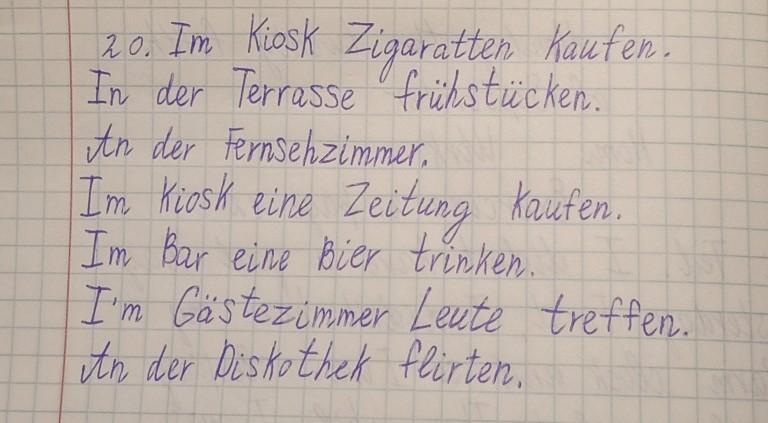 20. Im Kiosk Zigaratten kaufen.
In der Terrasse frühstücken.
An der Fernsehzimmer.
Im Kiosk eine Zeitung kaufen.
Im Bar eine Bier trinken.
I'm Gästezimmer Leute treffen.
An der Diskothek flirten.